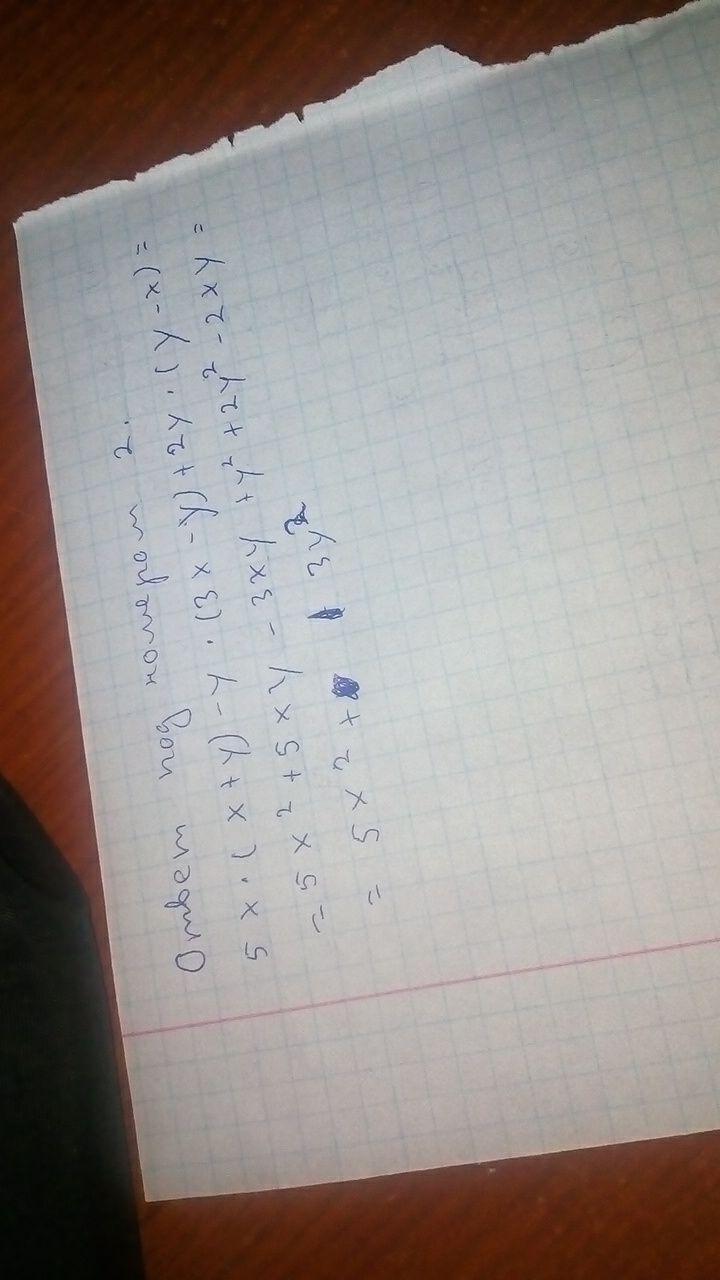 Ответ под номером 2.
5x·(x+y)-y·(3x-y)+2y·(y-x)=
=5x²+5xy-3xy+y²+2y²-2xy=
=5x²+3y²